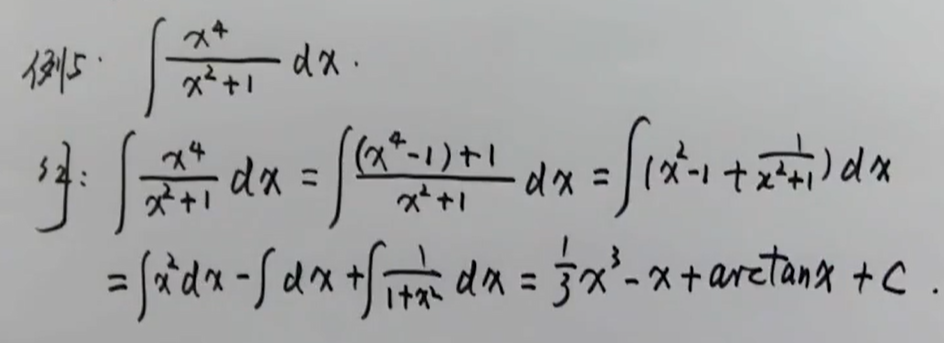 例5. ∫ x⁴/(x²+1) dx.
解: ∫ x⁴/(x²+1) dx = ∫ ((x⁴-1)+1)/(x²+1) dx = ∫(x²-1+1/(x²+1))dx
= ∫x²dx - ∫dx + ∫ 1/(1+x²) dx = 1/3 x³ - x + arctanx + C.